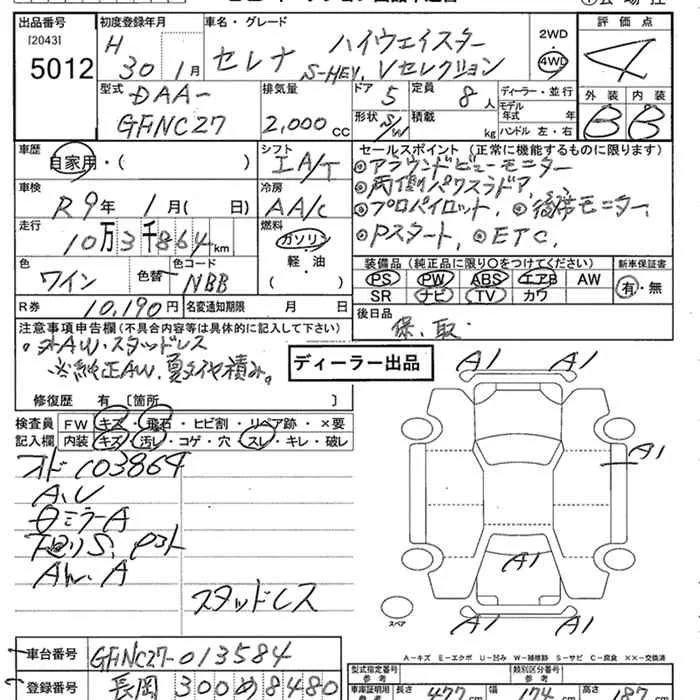 出品番号
[2043]
5012
初度登録年月
H 30年 1月
車名・グレード
セレナ ハイウェイスター
S-HEV. Vセレクション
2WD
4WD
評価点
4
型式
DAA-
GFNC27
排気量
2,000 CC
ドア
5
定員
8人
形状
S/W
積載
kg
ディーラー・並行
モデル年式 年
ハンドル 左・右
外装 内装
B B
車歴
自家用・( )
シフト
IA/T
セールスポイント (正常に機能するものに限ります)
◎アラウンドビューモニター
◎両側パワスラドア,
◎プロパイロット, ◎後席モニター,
◎Pスタート, ◎ETC,
車検
R9年 1月( 日)
冷房
AA/C
走行
10万3千864km
燃料
ガソリン
軽・油
( )
色
ワイン
色替
色コード
NBB
装備品 (純正品に限り○をつけてください)
PS PW ABS エアB AW
SR ナビ TV カワ
新車保証書
有・無
R券
10,190円
名変通知期限 月 日
後日品
保、取
注意事項申告欄 (不具合内容等は具体的に記入して下さい)
。外AW・スタッドレス
※純正AW、夏タイヤ積み。
修復歴 有 〔箇所 〕
ディーラー出品
検査員
記入欄
FW キズ・飛石・ヒビ割・リペア跡・×要
内装 キズ・汚レ・コゲ・穴・スレ・キレ・破レ
オド 103864
A、U
スタッドレス
A1 A1
A1
A1
A1 A1
スペア
A-キズ E-エクボ U-凹み W-補修跡 S-サビ C-腐食 ××-交換済
車台番号
GFNC27-013584
登録番号
長岡 300 め 8480
型式指定番号
類別区分番号
長さ 477cm
幅 174cm
高さ 187cm